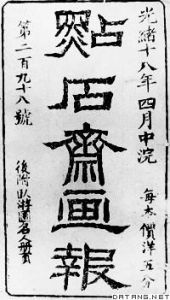 光緒十八年四月中浣
每本價洋五分
點石齋画報
第二百九十八號
DATANG.NET